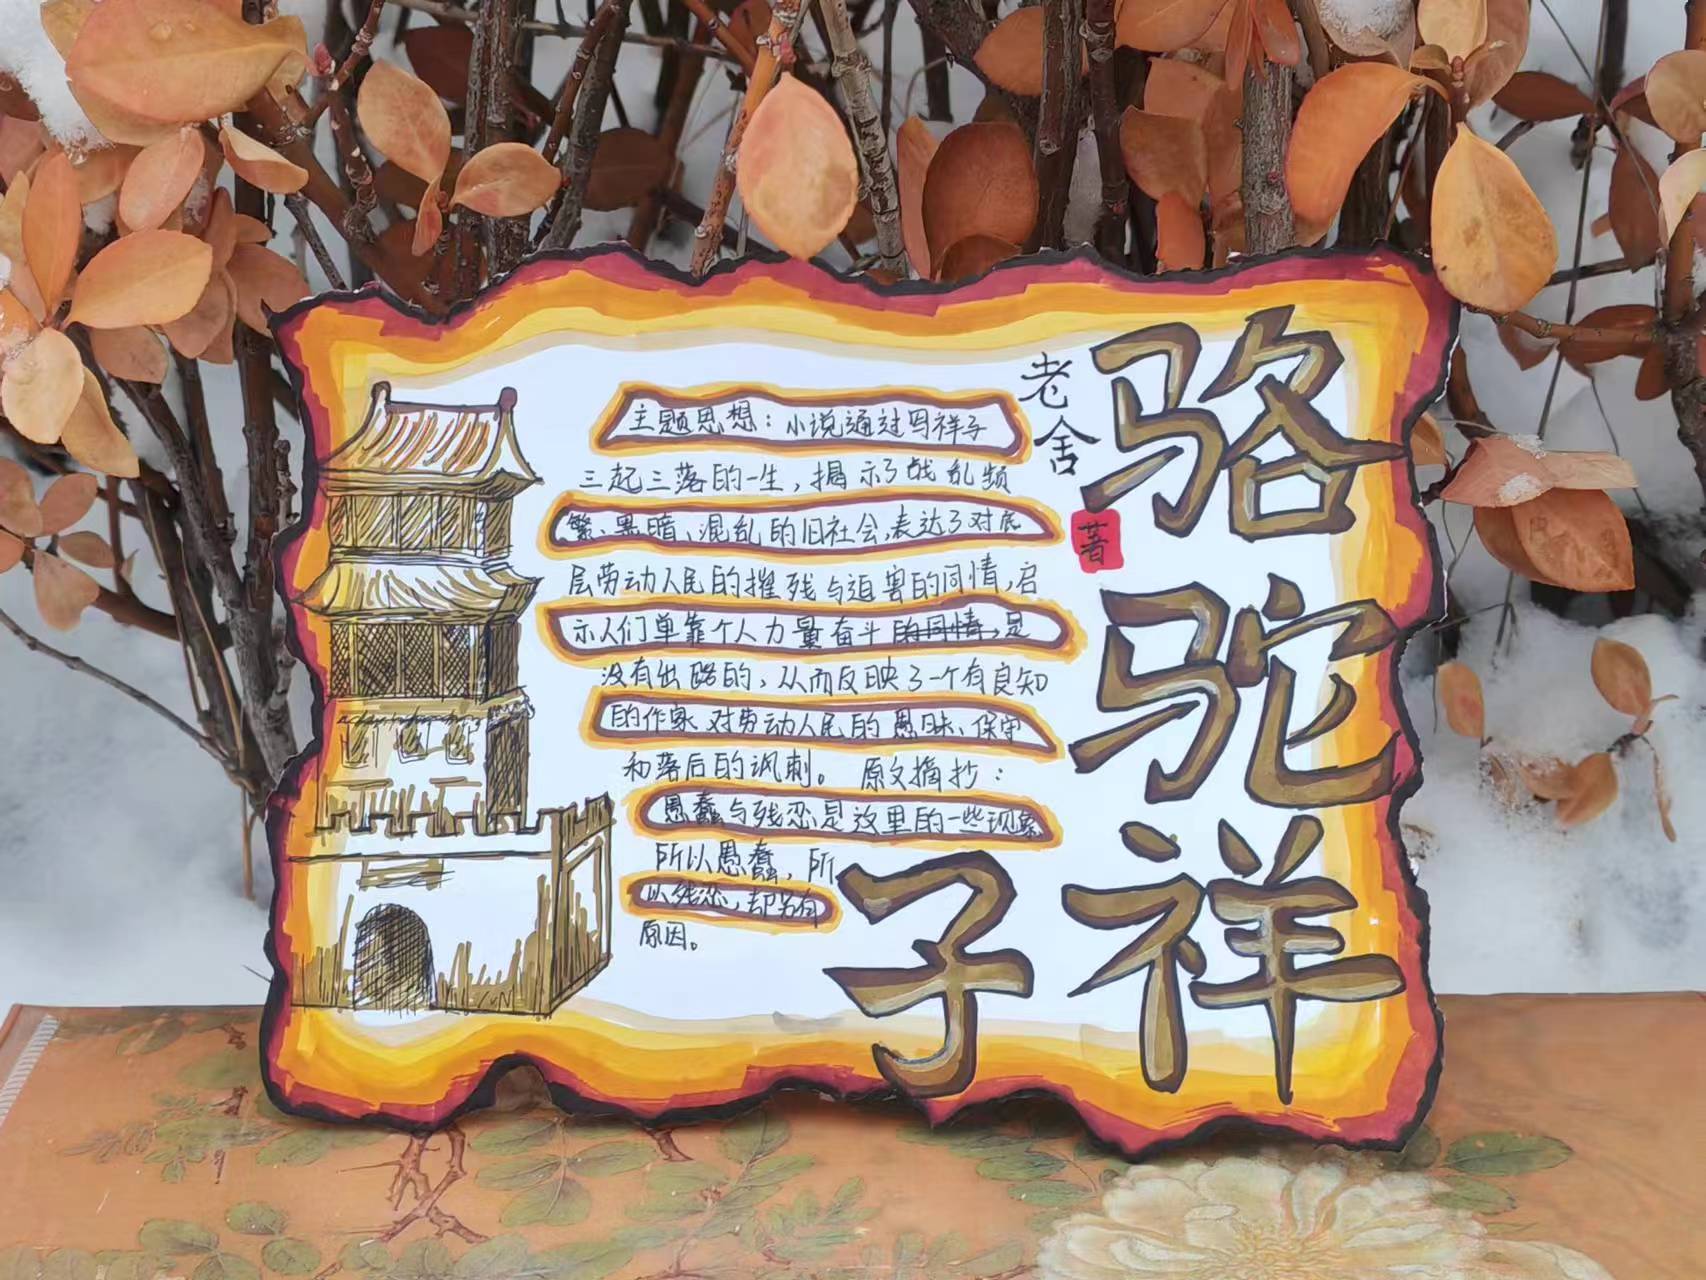 骆驼祥子
老舍
著
主题思想：小说通过写祥子
三起三落的一生，揭示了战乱频
繁、黑暗、混乱的旧社会，表达了对底
层劳动人民的摧残与迫害的同情，召
示人们单靠个人力量奋斗的同情，是
没有出路的，从而反映了一个有良知
的作家对劳动人民的愚昧、保守
和落后的讽刺。 原文摘抄：
愚蠢与残忍是这里的一些现象
所以愚蠢，所
以残忍，却另有
原因。